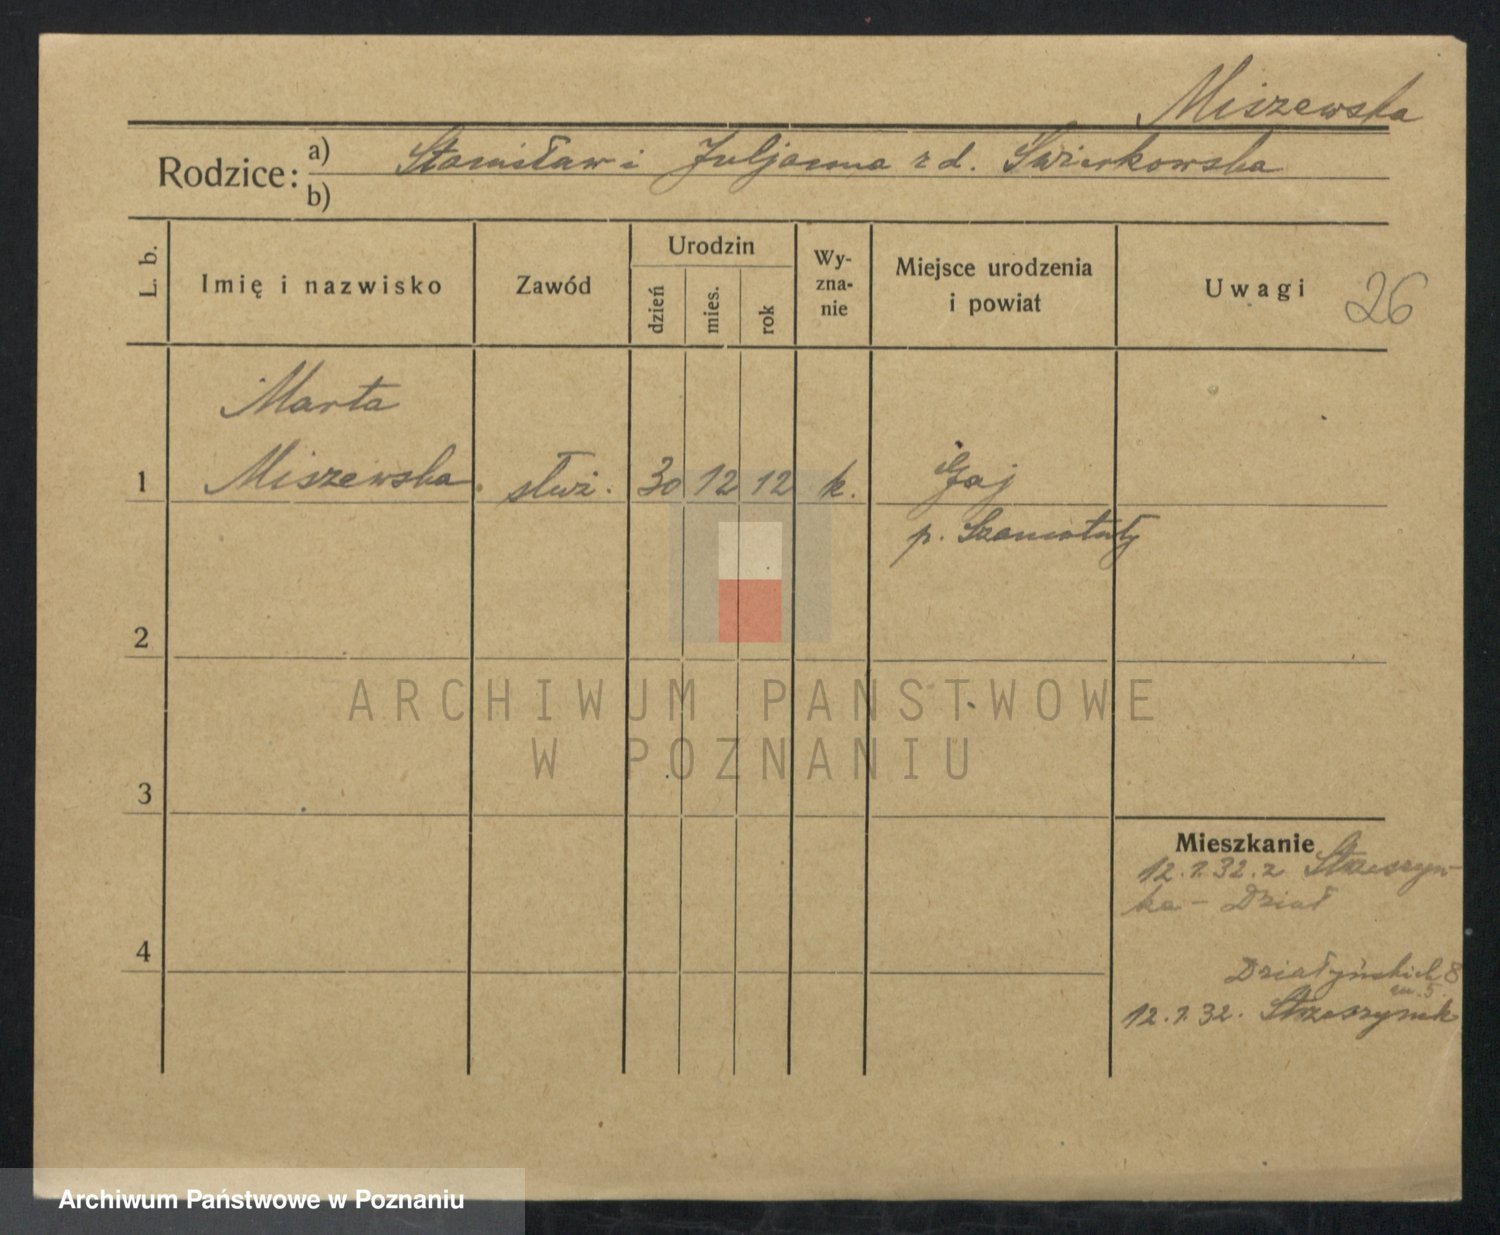 Miszewska
Rodzice: a) Stanisław i Juljanna z d. Świerkowska
b)
L. b. Imię i nazwisko Zawód Urodzin dzień mies. rok Wy-
zna-
nie Miejsce urodzenia
i powiat Uwagi 26
Marta
1 Miszewska służ. 30 12 12 k. Gaj
p. Szamotuły
2
ARCHIWUM PAŃSTWOWE
W POZNANIU
3
Mieszkanie
12.7.32. z Strzeszyn-
ka - Dział
4
Działyńskich 8
m. 5.
12.7.32. Strzeszynek
Archiwum Państwowe w Poznaniu